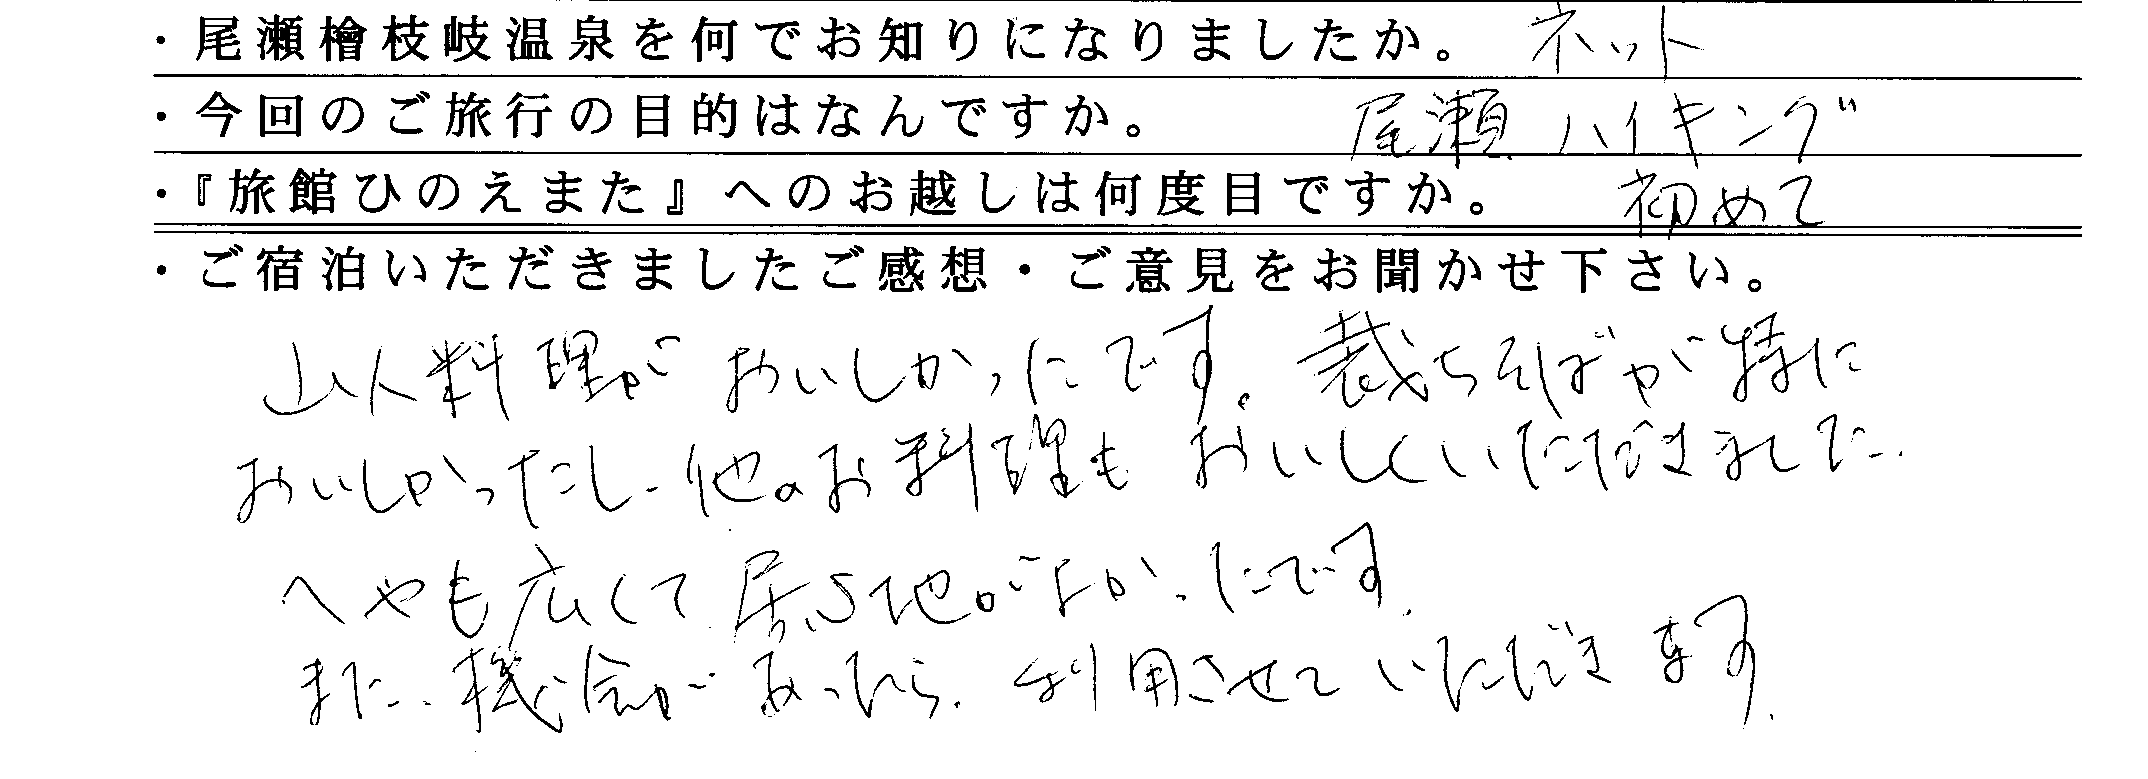 ・尾瀬檜枝岐温泉を何でお知りになりましたか。 ネット
・今回のご旅行の目的はなんですか。 尾瀬ハイキング
・『旅館ひのえまた』へのお越しは何度目ですか。 初めて
・ご宿泊いただきましたご感想・ご意見をお聞かせ下さい。
山人料理がおいしかったです。裁ちそばが特に
おいしかったし、他のお料理もおいしくいただきました。
へやも広くて居心地がよかったです。
また、機会があったら、利用させていただきます。